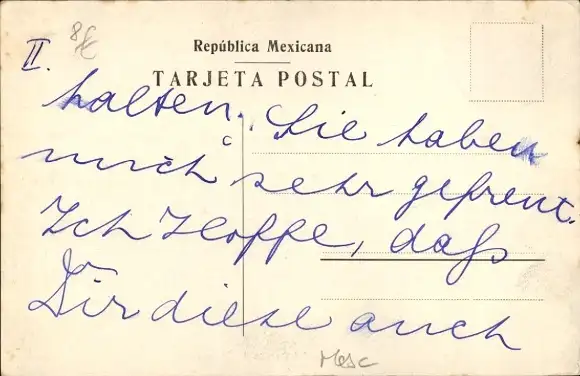 8£
II.
República Mexicana
TARJETA POSTAL
halten. Sie haben
c
mich sehr gefreut.
Ich Hoffe, daſs
Dir diese auch
Mesc